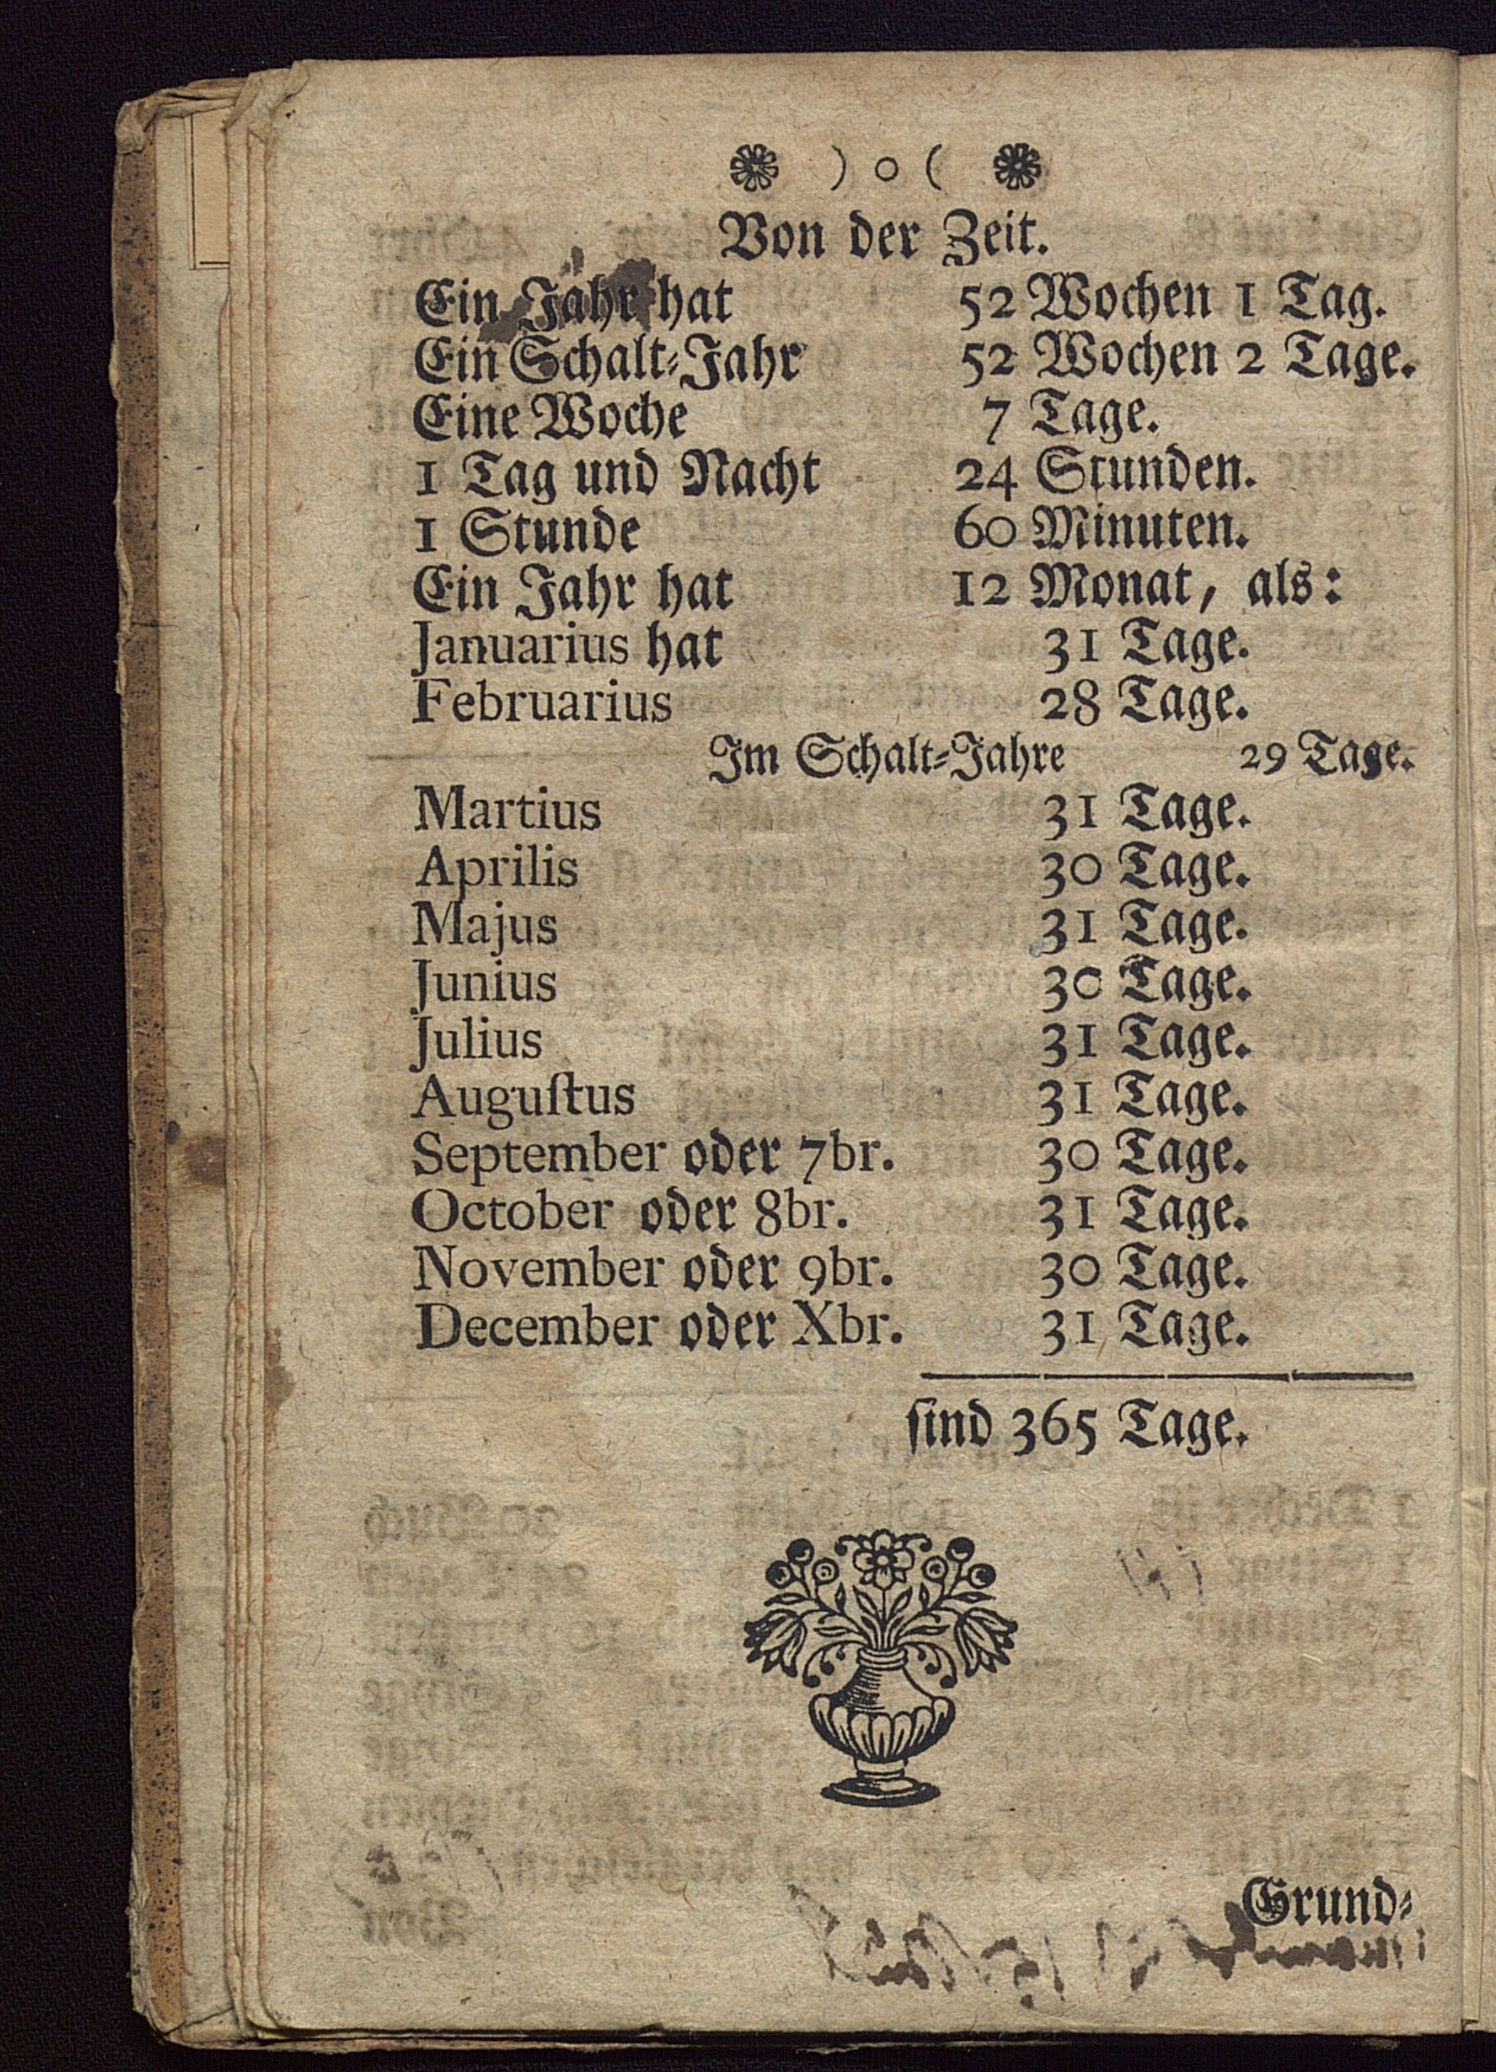 ) o (
Von der Zeit.
Ein Jahr hat 52 Wochen 1 Tag.
Ein Schalt-Jahr 52 Wochen 2 Tage.
Eine Woche 7 Tage.
1 Tag und Nacht 24 Stunden.
1 Stunde 60 Minuten.
Ein Jahr hat 12 Monat, als:
Januarius hat 31 Tage.
Februarius 28 Tage.
Im Schalt-Jahre 29 Tage.
Martius 31 Tage.
Aprilis 30 Tage.
Majus 31 Tage.
Junius 30 Tage.
Julius 31 Tage.
Auguſtus 31 Tage.
September oder 7br. 30 Tage.
October oder 8br. 31 Tage.
November oder 9br. 30 Tage.
December oder Xbr. 31 Tage.
ſind 365 Tage.
Grund-